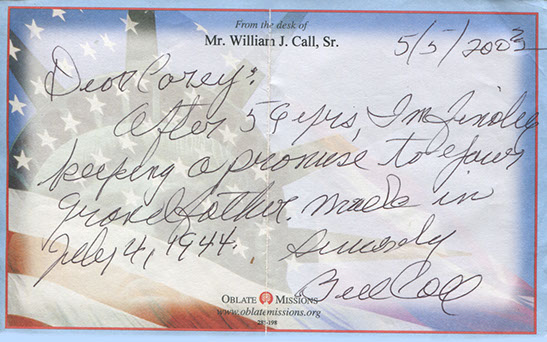 From the desk of
Mr. William J. Call, Sr.
5/5/2003
Dear Corey:
After 59 yrs, I'm finally
keeping a promise to your
Grandfather. Made in
July 4, 1944.
Sincerely
Bill Call
OBLATE MISSIONS
www.oblatemissions.org